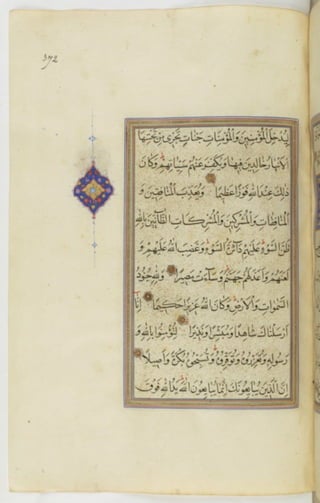 ليدخل المؤمنين والمؤمنات جنات تجري من تحتها
الانهار خالدين فيها ويكفر عنهم سيئاتهم وكان
ذلك عند الله فوزا عظيما ويعذب المنافقين و
المنافقات والمشركين والمشركات الظانين بالله
ظن السوء عليهم دائرة السوء وغضب الله عليهم و
لعنهم واعد لهم جهنم وساءت مصيرا ولله جنود
السموات والارض وكان الله عزيزا حكيما انا
ارسلناك شاهدا ومبشرا ونذيرا لتؤمنوا بالله و
رسوله وتعزروه وتوقروه وتسبحوه بكرة واصيلا
ان الذين يبايعونك انما يبايعون الله يد الله فوق